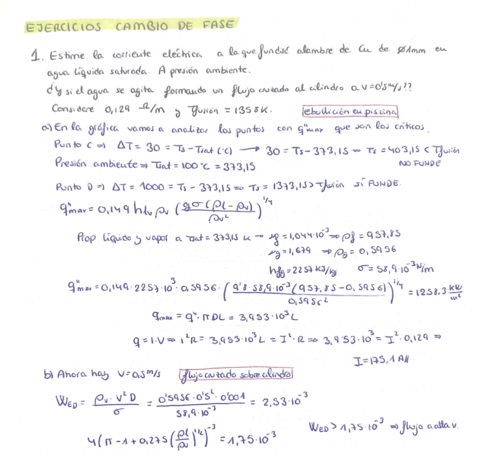 EJERCICIOS CAMBIO DE FASE
1. Estime la corriente eléctrica a la que fundiá alambre de Cu de ø1mm en
agua líquida saturada. A presión ambiente.
d'y si el agua se agita formando un flujo cruzado al cilindro a v=0'5m/s??
Considere 0,129 Ω/m y Tfusión = 1358K.
ebullición en piscina
a) En la gráfica vamos a analizar los puntos con q"max que son los críticos.
Punto C → ΔT = 30 = Ts - Tsat (°C) → 30 = Ts - 373,15 → Ts = 403,15 < Tfusión
NO FUNDE
Presión ambiente → Tsat = 100°C = 373,15
Punto D → ΔT = 1000 = Ts - 373,15 → Ts = 1373,15 > Tfusión SÍ FUNDE.
q"max = 0,149 hfv ρv (gσ(ρl-ρv)/ρv²)^1/4
Prop líquido y vapor a Tsat = 373,15 K → vf = 1,044·10⁻³ → ρf = 957,85
vg = 1,679 → ρg = 0,5956
hfg = 2257 KJ/kg σ = 58,9·10⁻³ N/m
q"max = 0,149·2257·10³·0,5956·(9'8·58,9·10⁻³(957,85-0,5956)/0,5956²)^1/4 = 1258,3 KW/m²
qmax = q"·πDL = 3,953·10³ L
q = I·V → I²R = 3,953·10³L = I²·R → 3,953·10³ = I²·0,129 ⇒
I = 175,1 A
b) Ahora hay v = 0,5 m/s flujo cruzado sobre cilindro
WeD = ρv·V²D/σ = 0'5956·0'5²·0'001/58,9·10⁻³ = 2,53·10⁻³
4(π-1+0,275(ρl/ρv)^1/2)⁻³ = 1,75·10⁻³
WeD > 1,75·10⁻³ → flujo a alta v.